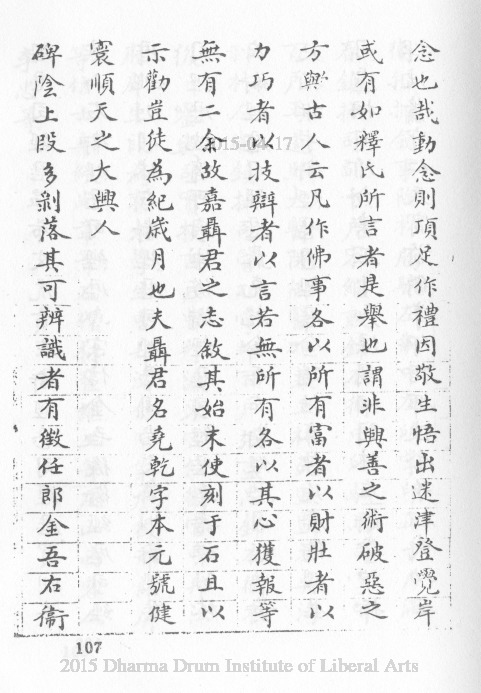 念也哉動念則頂足作禮因敬生悟出迷津登覺岸
或有如釋氏所言者是舉也謂非興善之術破惡之
方歟古人云凡作佛事各以所有富者以財壯者以
力巧者以技辯者以言若無所有各以其心獲報等
無有二余故嘉聶君之志敘其始末使刻于石且以
示勸豈徒為紀歲月也夫聶君名堯乾字本元號健
寰順天之大興人
碑陰上段多剝落其可辨識者有徵任郎金吾右衛
2015-04-17
107
2015 Dharma Drum Institute of Liberal Arts